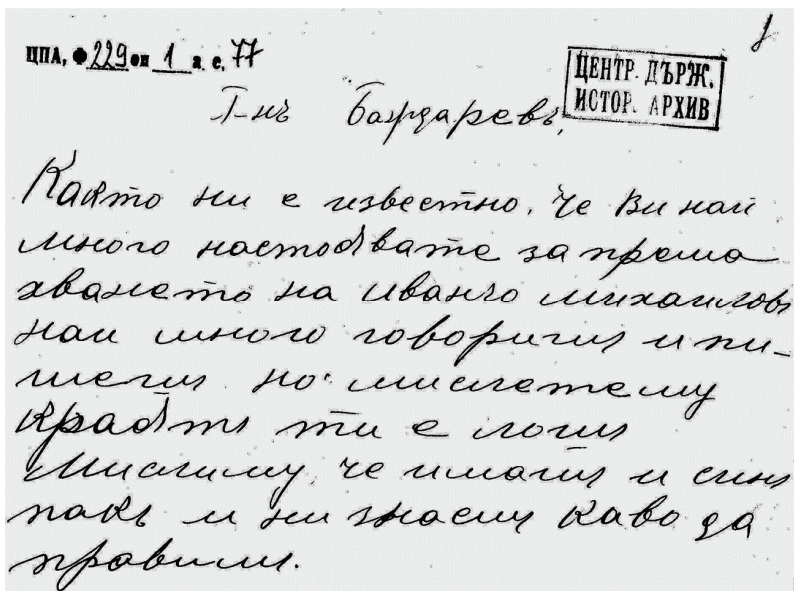 1
ЦПА, Ф 229 оп 1 а. е. 77
ЦЕНТР. ДЪРЖ.
ИСТОР. АРХИВ
Г-нъ Бафдаревъ,
Каято ни е известно, че Ви наи
много настоявате за према
хването на Иванчо Михаиловъ
наи много говоришъ и пи-
шешъ но мислетему
краятъ ти е лошъ
Мислиму, че имашъ и синъ
пакъ и ни знаемъ каво да
правимъ.